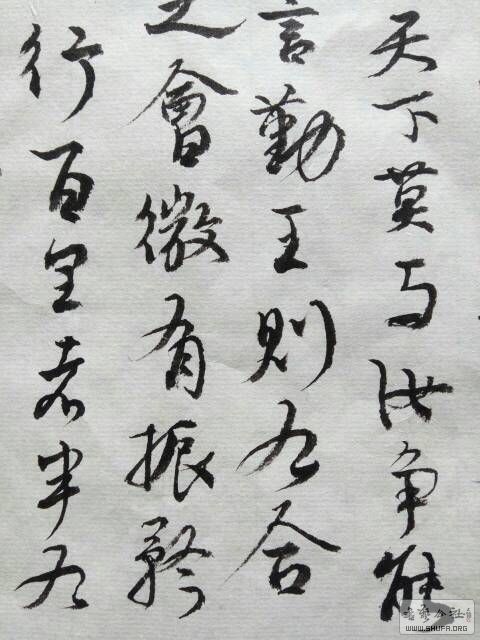 天下莫与汝争能
言勤王则九合
之會微有振矜
行百里者半九
书艺公社
WWW.SHUFA.ORG